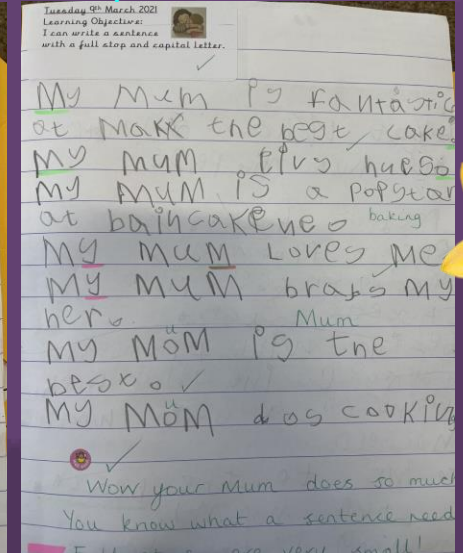 Tuesday 9th March 2021
Learning Objective:
I can write a sentence
with a full stop and capital letter.
My Mum is fantastic
at Makk the best cake.
My mum givs hueso
My MUM is a popstar
at baincakeue.
baking
My mum Loves Me
My MUM brars My
her.
Mum
u
My MoM is the
best.
u
My MoM dos cooking
Wow your Mum does so much
You know what a sentence need
small!